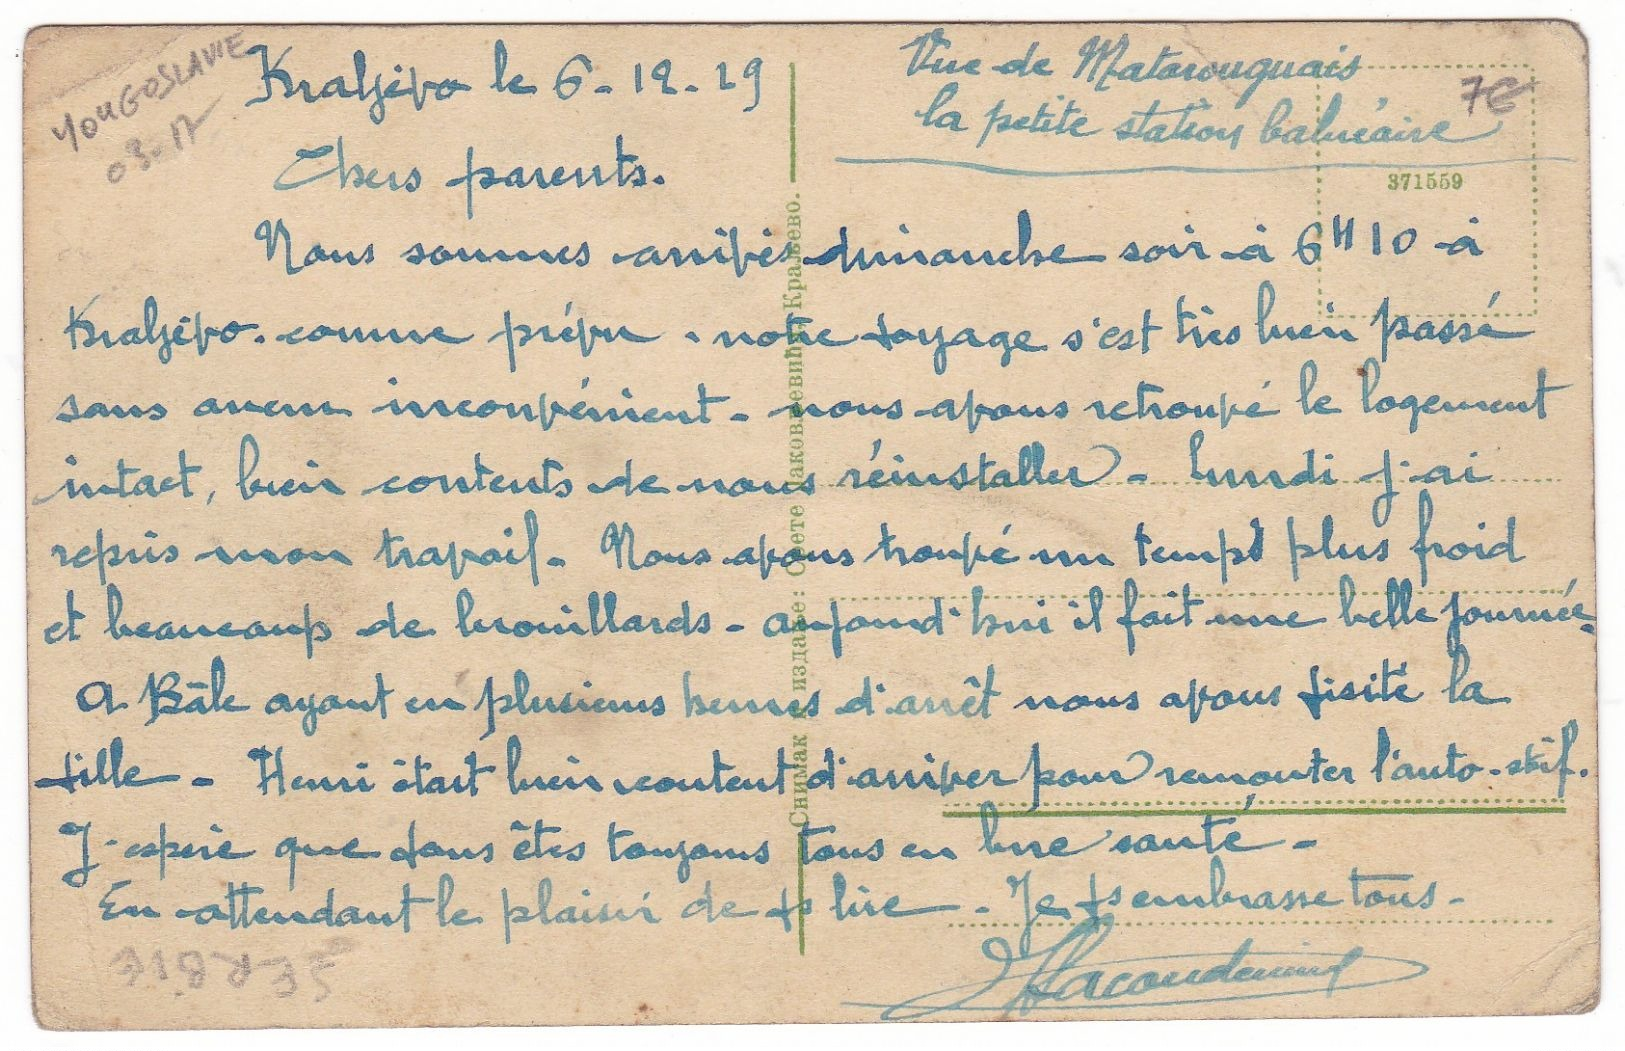 YOUGOSLAVIE
03-17
Kraljevo le 6-12-29
Vue de Matarouguais
la petite station balnéaire
7€
371559
Chers parents.
Nous sommes arrivés dimanche soir à 6H10 à
Kraljevo. comme prévu. notre voyage s'est très bien passé
sans aucun inconvénient - nous avons retrouvé le logement
intact, bien contents de nous réinstaller - lundi j'ai
repris mon travail - Nous avons trouvé un temps plus froid
et beaucoup de brouillards - aujourd'hui il fait une belle journée -
A Bâle ayant eu plusieurs heures d'arrêt nous avons visité la
ville - Henri était bien content d'arriver pour remonter l'auto-skif.
J'espère que vous êtes toujours tous en bne santé -
En attendant le plaisir de vs lire - Je vs embrasse tous -
Снимак и издање: Срете Јаковљевића Краљево.
SERBIE